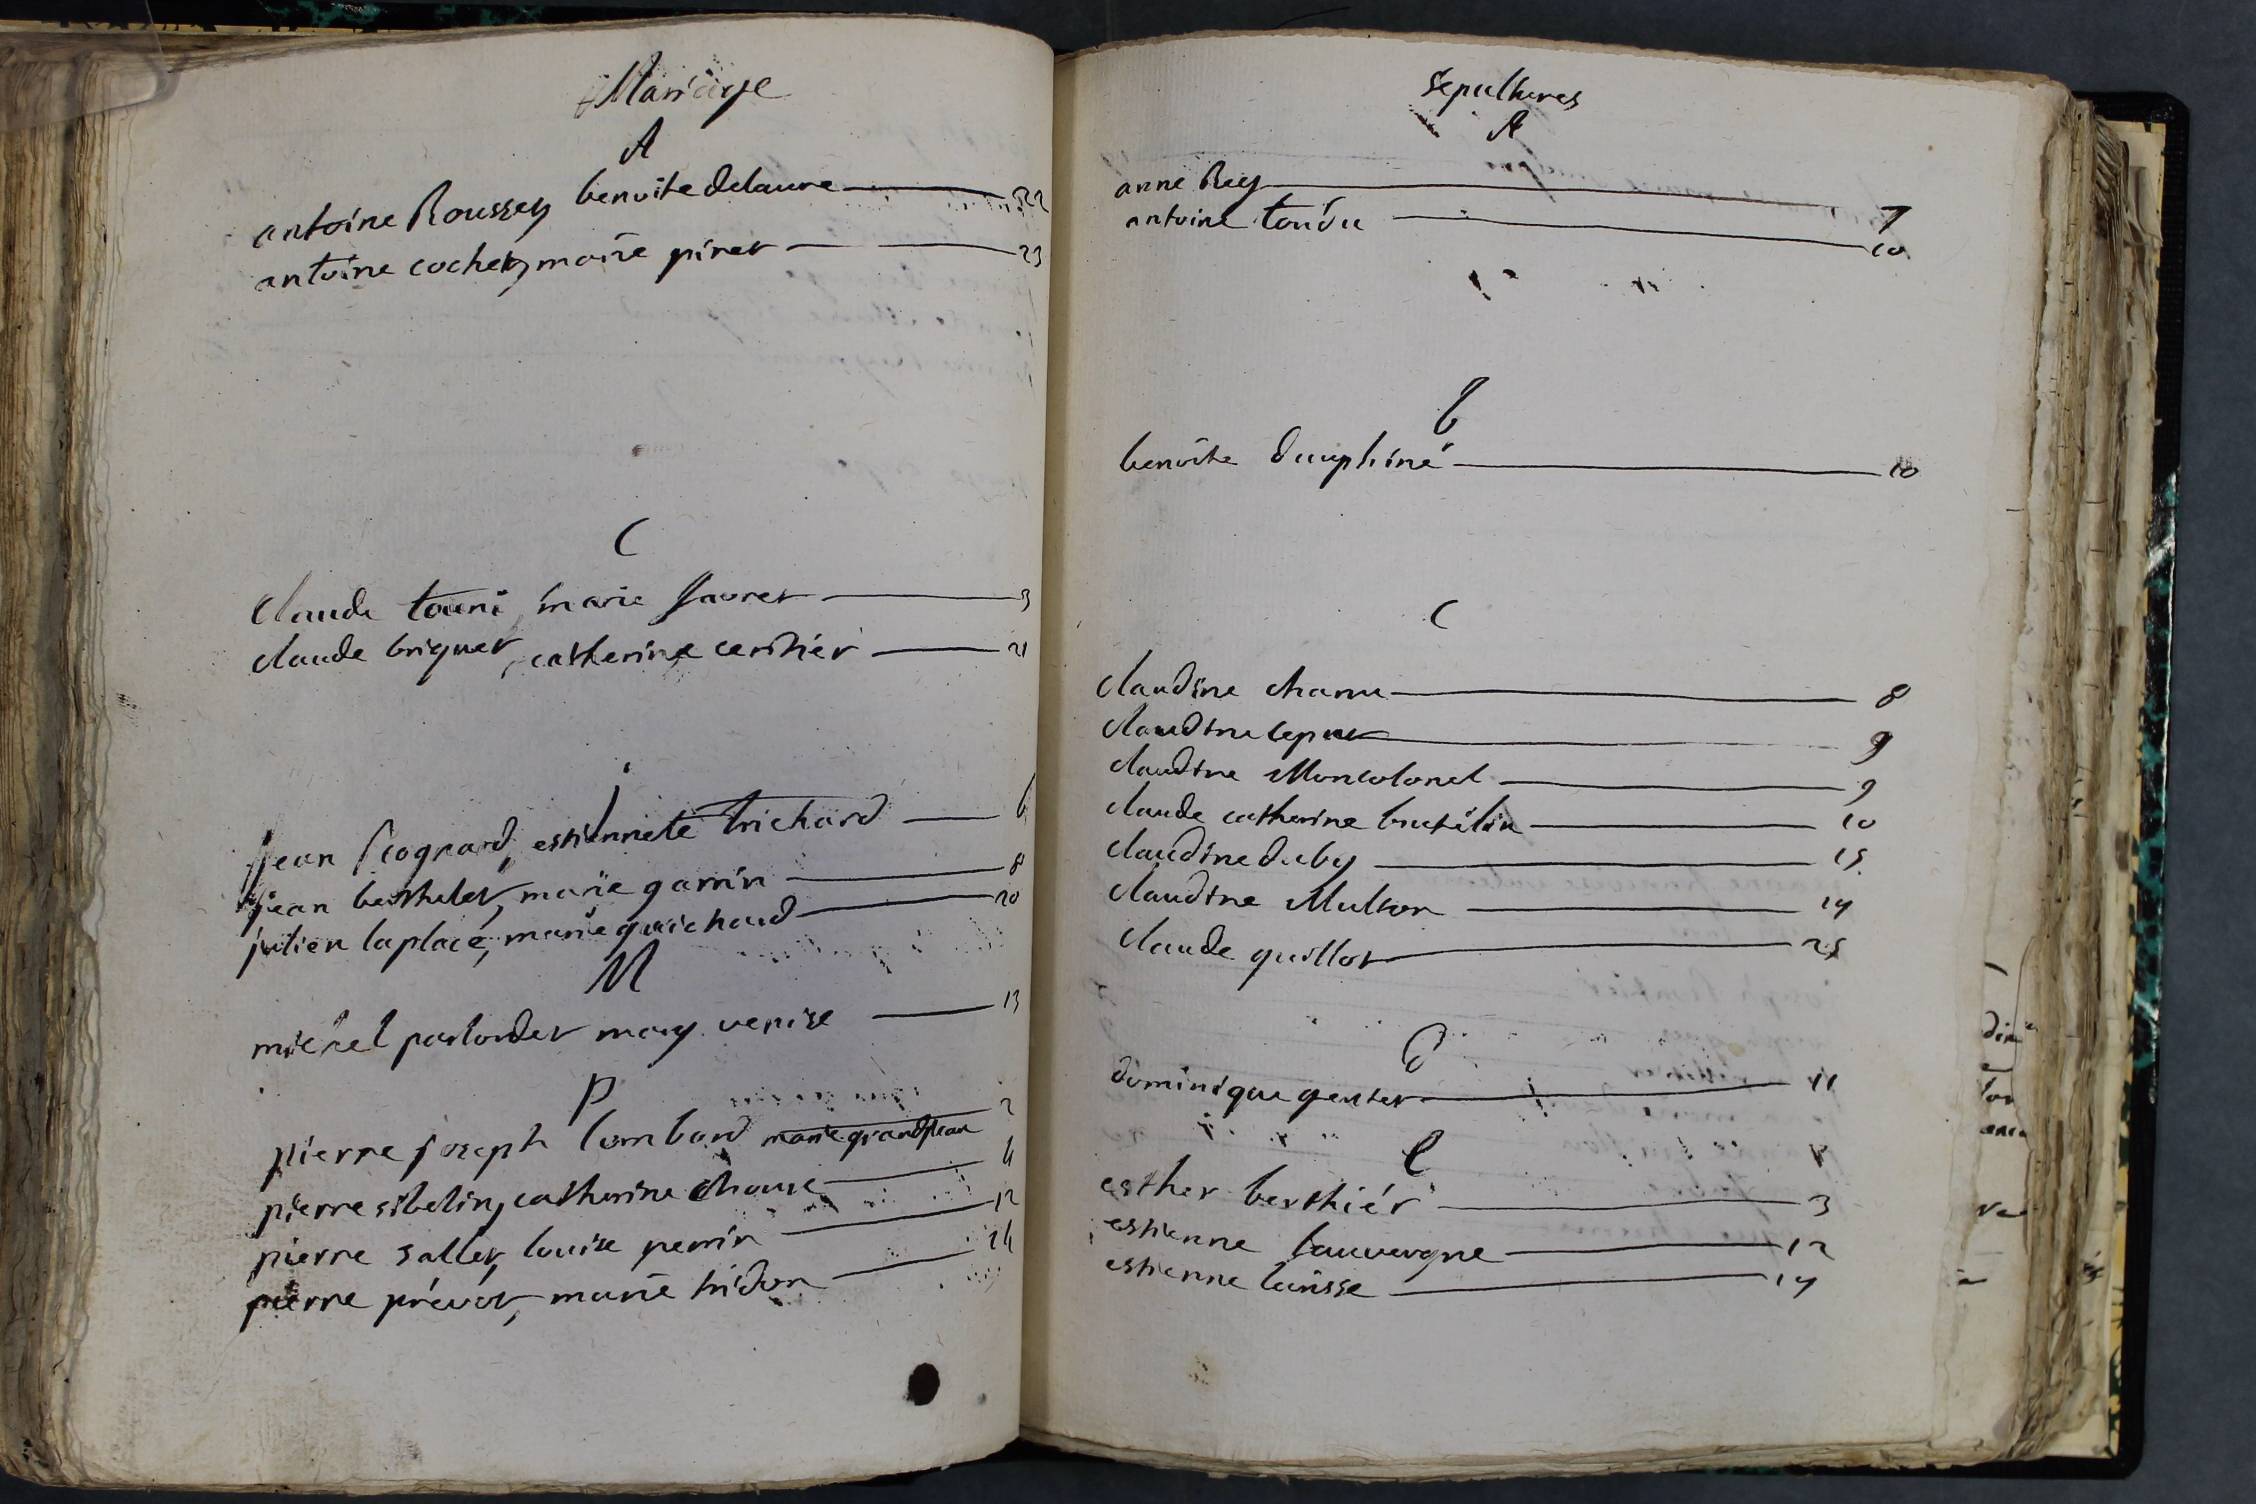 Mariage
A
antoine Roussey benoite delaure 22
antoine cochet, marie piret 23
C
claude touni, marie favret 3
claude briquet, catherine cerisier 21
j
jean cognard, estiennete trichard 6
jean berthelet, marie garrin 8
julien laplace, marie guichard 20
M
michel parlordet mary venise 13
P
pierre joseph lombard marie grandjean 2
pierre sibelin, catherine chause 4
pierre sallet, louise perrin 12
pierre prévot, marie tridon 24
sepultures
A
anne Rey 7
antoine toudu 10
b
benoite dauphiné 10
C
claudine chanu 8
claudine 9
claudine Moncolonel 9
claude catherine brutélin 10
claudine duby 15
claudine Multon 14
claude guillot 25
d
dominique gentet 11
e
esther berthiér 3
estienne lauvergne 12
estienne laisse 14